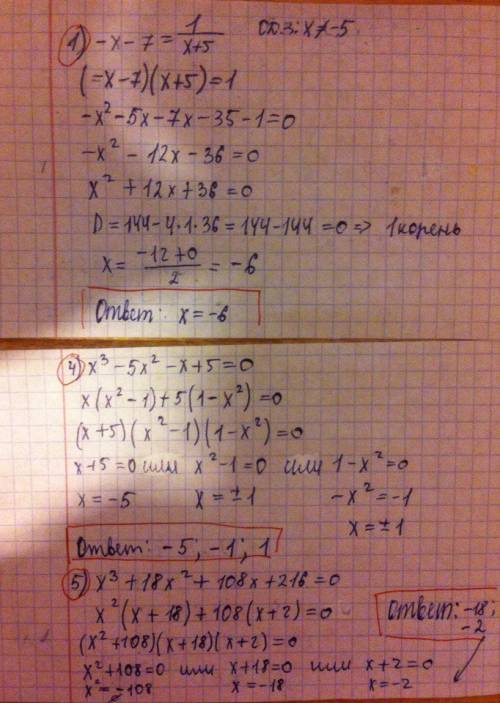 1) -x-7 = 1/(x+5) ОДЗ: x≠-5
(-x-7)(x+5)=1
-x²-5x-7x-35-1=0
-x²-12x-36=0
x²+12x+36=0
D=144-4·1·36=144-144=0=> 1 корень
x= (-12+0)/2 = -6
Ответ: x=-6
4) x³-5x²-x+5=0
x(x²-1)+5(1-x²)=0
(x+5)(x²-1)(1-x²)=0
x+5=0 или x²-1=0 или 1-x²=0
x=-5 x=±1 -x²=-1
x=±1
Ответ: -5; -1; 1
5) x³+18x²+108x+216=0
x²(x+18)+108(x+2)=0
(x²+108)(x+18)(x+2)=0
x²+108=0 или x+18=0 или x+2=0
x²=-108 x=-18 x=-2
Ответ: -18;
-2